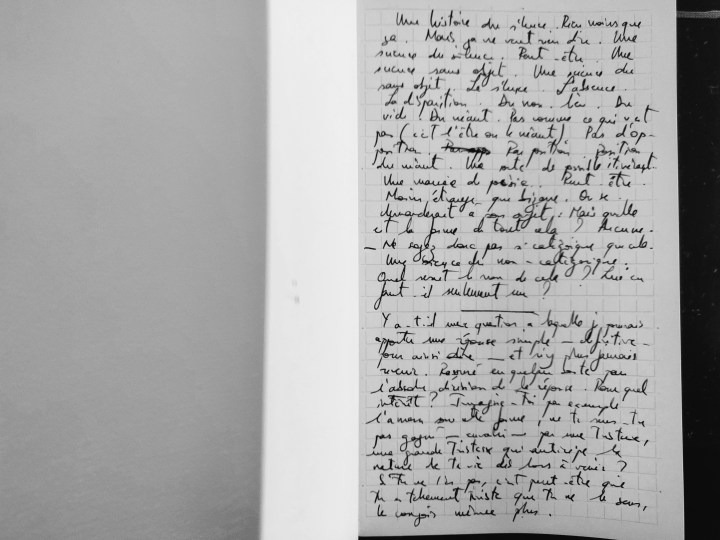 Une histoire du silence. Rien moins que
ça. Mais ça ne veut rien dire. Une
science du silence. Peut-être. Une
science sans objet. Une science du
sans objet. Le silence. L'absence.
La disparition. Du non-lieu. Du
vide. Du néant. Pas comme ce qui n'est
pas (c'est l'être ou le néant). Pas d'op-
position. Pas position. position
du néant. Une sorte de possible
Une manière de poésie. Peut-être.
Moins étrange que bizarre. On se
demanderait à son sujet : Mais quelle
est la forme de tout cela ? Aucune.
— Ne soyez donc pas si catégorique que cela.
Une science du non-catégorique.
Quel serait le nom de cela ? Lui en
faut-il seulement un ?
Y a-t-il une question à laquelle je pourrais
apporter une réponse simple — définitive
pour ainsi dire — et n'y plus jamais
revenir. Rassuré en quelque sorte par
l'absolue de la réponse. Pour quel
intérêt ? Imagine-toi par exemple
l'amour sous cette forme, ne te sens-tu
pas gagné — envahi — par une Tristesse,
une grande Tristesse qui anticipe la
nature de ta vie dès lors à venir ?
Si tu ne l'es pas, c'est peut-être que
tu es tellement triste que tu ne le sens,
le conçois même plus.